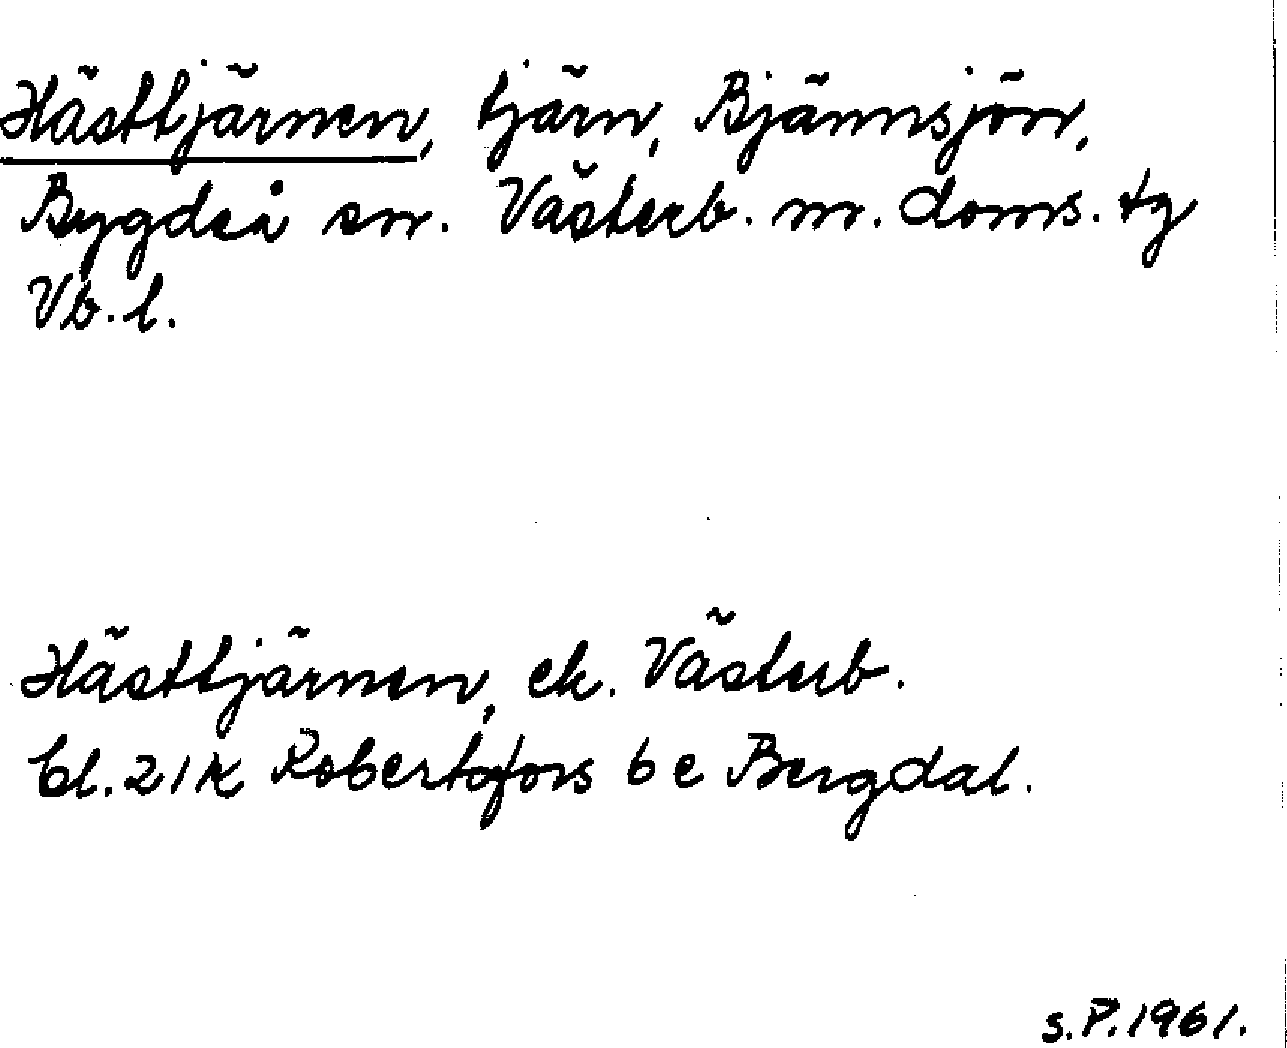 Hästtjärnen, tjärn, Bjännsjön,
Bygdeå sn. Västerb. m. doms. tg
Vb. l.
Hästtjärnen, ek. Västerb.
Bl. 21K Robertsfors 6 e Bergdal.
S.P. 1961.